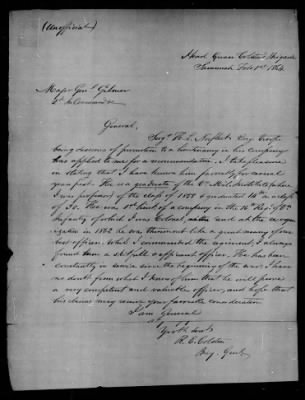 (Unofficial)
Head Quars Colston's Brigade
Savannah Feby 1st 1864
Major Genl Gilmer
2d in Command &c
General,
Sergt H. L. Eng. Troops
being desirous of promotion to a lieutenancy in his company
has applied to me for a recommendation. I take pleasure
in stating that I have known him favorably for several
years past. He was a graduate of the Va. Mil. Institute (where
I was professor) of the class of 1858 & graduated 14th in a class
of He was 2d Lieut of a company in the 16th Regt of Va
Infantry of which I was Colonel,
in 1862 he was thrown out like a great many of our
best officers. While I commanded the regiment, I always
found him a skilful & efficient officer. He has been
constantly in service since the beginning of the war & I have
no doubt from what I know of him that he will prove
a very competent and valuable officer, and hope that
his claims may receive your favorable consideration
I am General
Yr obt Servt
R. E. Colston
Brig. Genl.